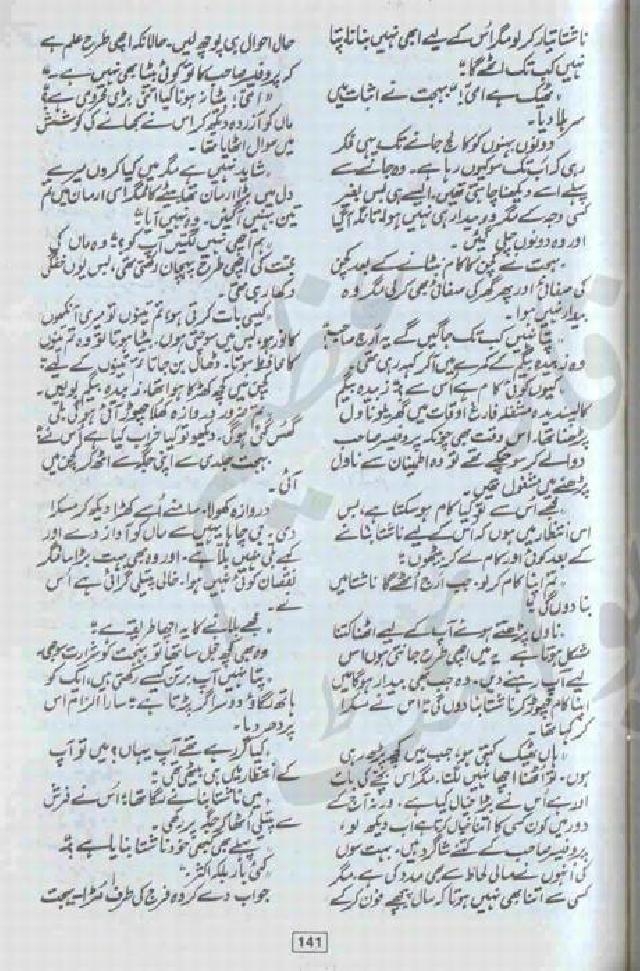 ناشتا تیار کر لو مگر اُس کے لیے ابھی نہیں بنانا پتا
نہیں کب تک اٹھے گا۔"
"ٹھیک ہے امی!" بہجت نے اثبات میں
سر ہلا دیا۔
دونوں بہنوں کو کالج جانے تک یہی فکر
رہی کہ اب تک سو کیوں رہا ہے۔ وہ جانے سے
پہلے اسے دیکھنا چاہتی تھیں، ایسے ہی بس بغیر
کسی وجہ کے مگر وہ بیدار ہی نہیں ہوا تھا
اور وہ دونوں چلی گئیں۔
بہجت نے کچن کا کام نبٹانے کے بعد کچن
کی صفائی اور پھر گھر کی صفائی بھی کر لی مگر وہ
بیدار نہیں ہوا۔
"پتا نہیں کب تک جاگیں گے یہ اورج صاحب"
وہ زبیدہ بیگم کے کمرے میں آ کر کہہ رہی تھی۔
"کیوں کوئی کام ہے اُس سے؟" زبیدہ بیگم
کا پسندیدہ مشغلہ فارغ اوقات میں گھریلو ناول
پڑھنا تھا۔ اس وقت بھی چونکہ پروفیسر صاحب
دوا لے کر سو چکے تھے تو وہ اطمینان سے ناول
پڑھنے میں مشغول تھیں۔
"مجھے اُس سے کیا کام ہو سکتا ہے، بس
اس انتظار میں ہوں کہ اُس کے لیے ناشتا بنانے
کے بعد کوئی اور کام لے کر بیٹھوں۔"
"تم اپنا کام کر لو۔ جب اورج اُٹھے گا ناشتا میں
بنا دوں گی۔"
"ناول پڑھتے ہوئے آپ کے لیے اٹھنا کتنا
مشکل ہوتا ہے یہ میں اچھی طرح جانتی ہوں اس
لیے آپ رہنے دیں۔ وہ جب بھی بیدار ہو گا میں
اپنا کام چھوڑ کر ناشتا بنا دوں گی۔" اس نے مسکرا
کر کہا تھا۔
"ہاں ٹھیک کہتی ہو، جب میں کچھ پڑھ رہی
ہوں۔ تو اٹھنا اچھا نہیں لگتا، مگر اس بچے کی بات
اور ہے اُس نے بڑا خیال کیا ہے۔ ورنہ آج کے
دور میں کون کسی کا اتنا خیال کرتا ہے اب دیکھ لو،
پروفیسر صاحب کے کتنے شاگرد ہیں۔ بہت سوں
کی اُنہوں نے مالی لحاظ سے بھی مدد کی ہے، مگر
کسی سے اتنا بھی نہیں ہوتا کہ سال پیچھے فون کر کے
حال احوال ہی پوچھ لیں۔ حالانکہ اچھی طرح علم ہے
کہ پروفیسر صاحب کا تو کوئی بیٹا بھی نہیں ہے۔"
"امی! بیٹا نہ ہونا کیا اتنی بڑی محرومی ہے؟"
ماں کو آزردہ دیکھ کر اس نے سمجھانے کی کوشش
میں سوال اٹھایا تھا۔
"شاید نہیں ہے مگر میں کیا کروں میرے
دل میں بڑا ارمان تھا بیٹے کا مگر اسی ارمان میں تم
تین بہنیں آ گئیں۔ وہ نہیں آیا۔"
"ہم اچھی نہیں لگتیں آپ کو؟" وہ ماں کی
محبت کی اچھی طرح پہچان رکھتی تھی، بس یوں خفگی
دکھا رہی تھی۔
"کیسی بات کرتی ہو، تم تینوں تو میری آنکھوں
کا نور ہو، بس میں سوچتی ہوں۔ بیٹا ہوتا تو وہ تم تینوں
کا محافظ ہوتا۔ ڈھال بن جاتا تم تینوں کے لیے۔"
کچن میں کچھ کھڑکا ہوا تھا۔ زبیدہ بیگم بولیں۔
"تم ضرور دروازہ کھلا چھوڑ آئی ہو گی بلی
گھس گئی ہو گی۔ دیکھو تو کیا خراب کیا ہے اُس نے"
بہجت جلدی سے اپنی جگہ سے اٹھ کر کچن میں
آئی۔
دروازہ کھولا۔ سامنے اُسے کھڑا دیکھ کر مسکرا
دی۔ جی چاہا یہیں سے ماں کو آواز دے اور
کہے بلی نہیں بلا ہے۔ اور وہ بھی بہت بڑا سا مگر
نقصان کوئی نہیں ہوا۔ خالی پتیلی گرائی ہے اُس
نے۔
"مجھے بلانے کا یہ اچھا طریقہ ہے۔"
وہ بھی کچھ خجل سا تھا تو بہجت کو شرارت سوجھی۔
"پتا نہیں آپ برتن کیسے رکھتی ہیں، ایک کو
ہاتھ لگاؤ دوسرا گر پڑتا ہے۔" سارا الزام اُس
پر دھر دیا۔
"کیا کر رہے تھے آپ یہاں؟ میں تو آپ
کے انتظار میں ہی بیٹھی تھی۔"
"میں ناشتا بنانے لگا تھا۔" اُس نے فرش
سے پتیلی اُٹھا کر جگہ پر رکھی۔
"پہلے بھی کبھی خود ناشتا بنایا ہے؟"
"کئی بار بلکہ اکثر۔"
جواب دے کر وہ فرج کی طرف مڑا۔ بہجت
141